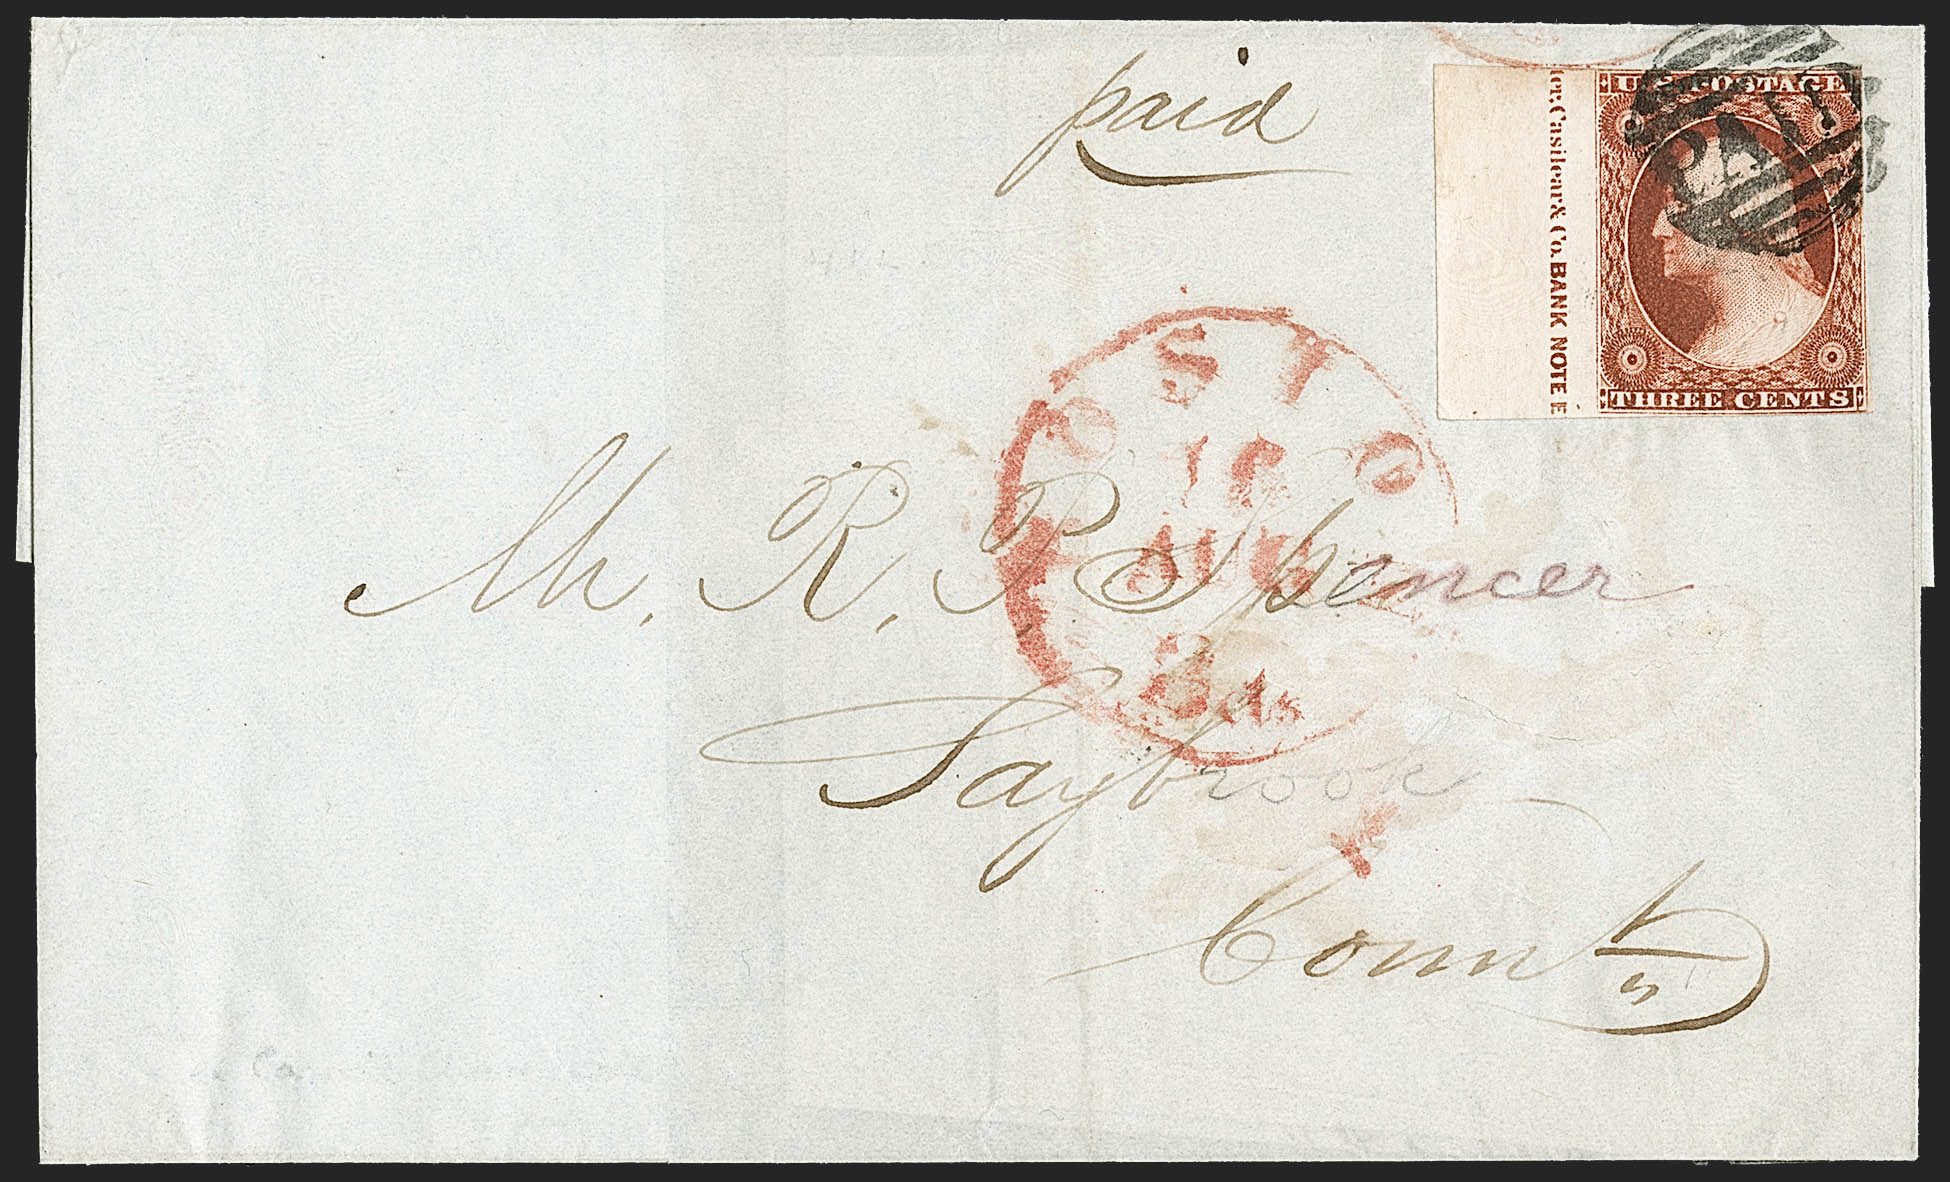 paid
U.S. POSTAGE
PAID
THREE CENTS
Casilear & Co. BANK NOTE E
BOSTON
16
AUG
Mr. R. P. Spencer
Saybrook
Connt